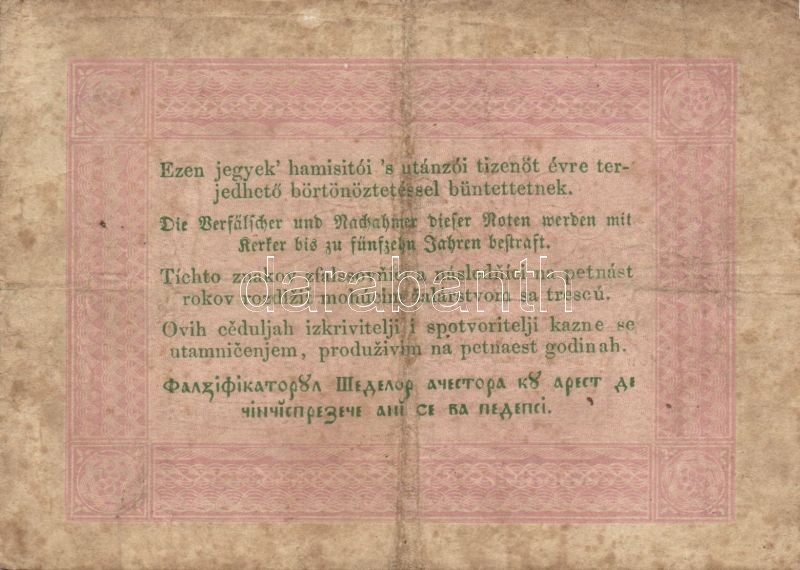 Ezen jegyek’ hamisitói ’s utánzói tizenöt évre ter-
jedhető börtönöztetéssel büntettetnek.
Die Verfälscher und Nachahmer dieser Noten werden mit
Kerker bis zu fünfzehn Jahren bestraft.
darabanth
Tíchto znakov zfalssovňíci a následňíci na petnást
rokov rozďížiť mohúcim žalárstvom sa trescú.
Ovih cěduljah izkrivitelji i spotvoritelji kazne se
utamničenjem, produživim na petnaest godinah.
Фалꙁіфікаторꙋл Шеделор ачестора кꙋ арест де
чінчĭспрезече анĭ се ва педепсі.